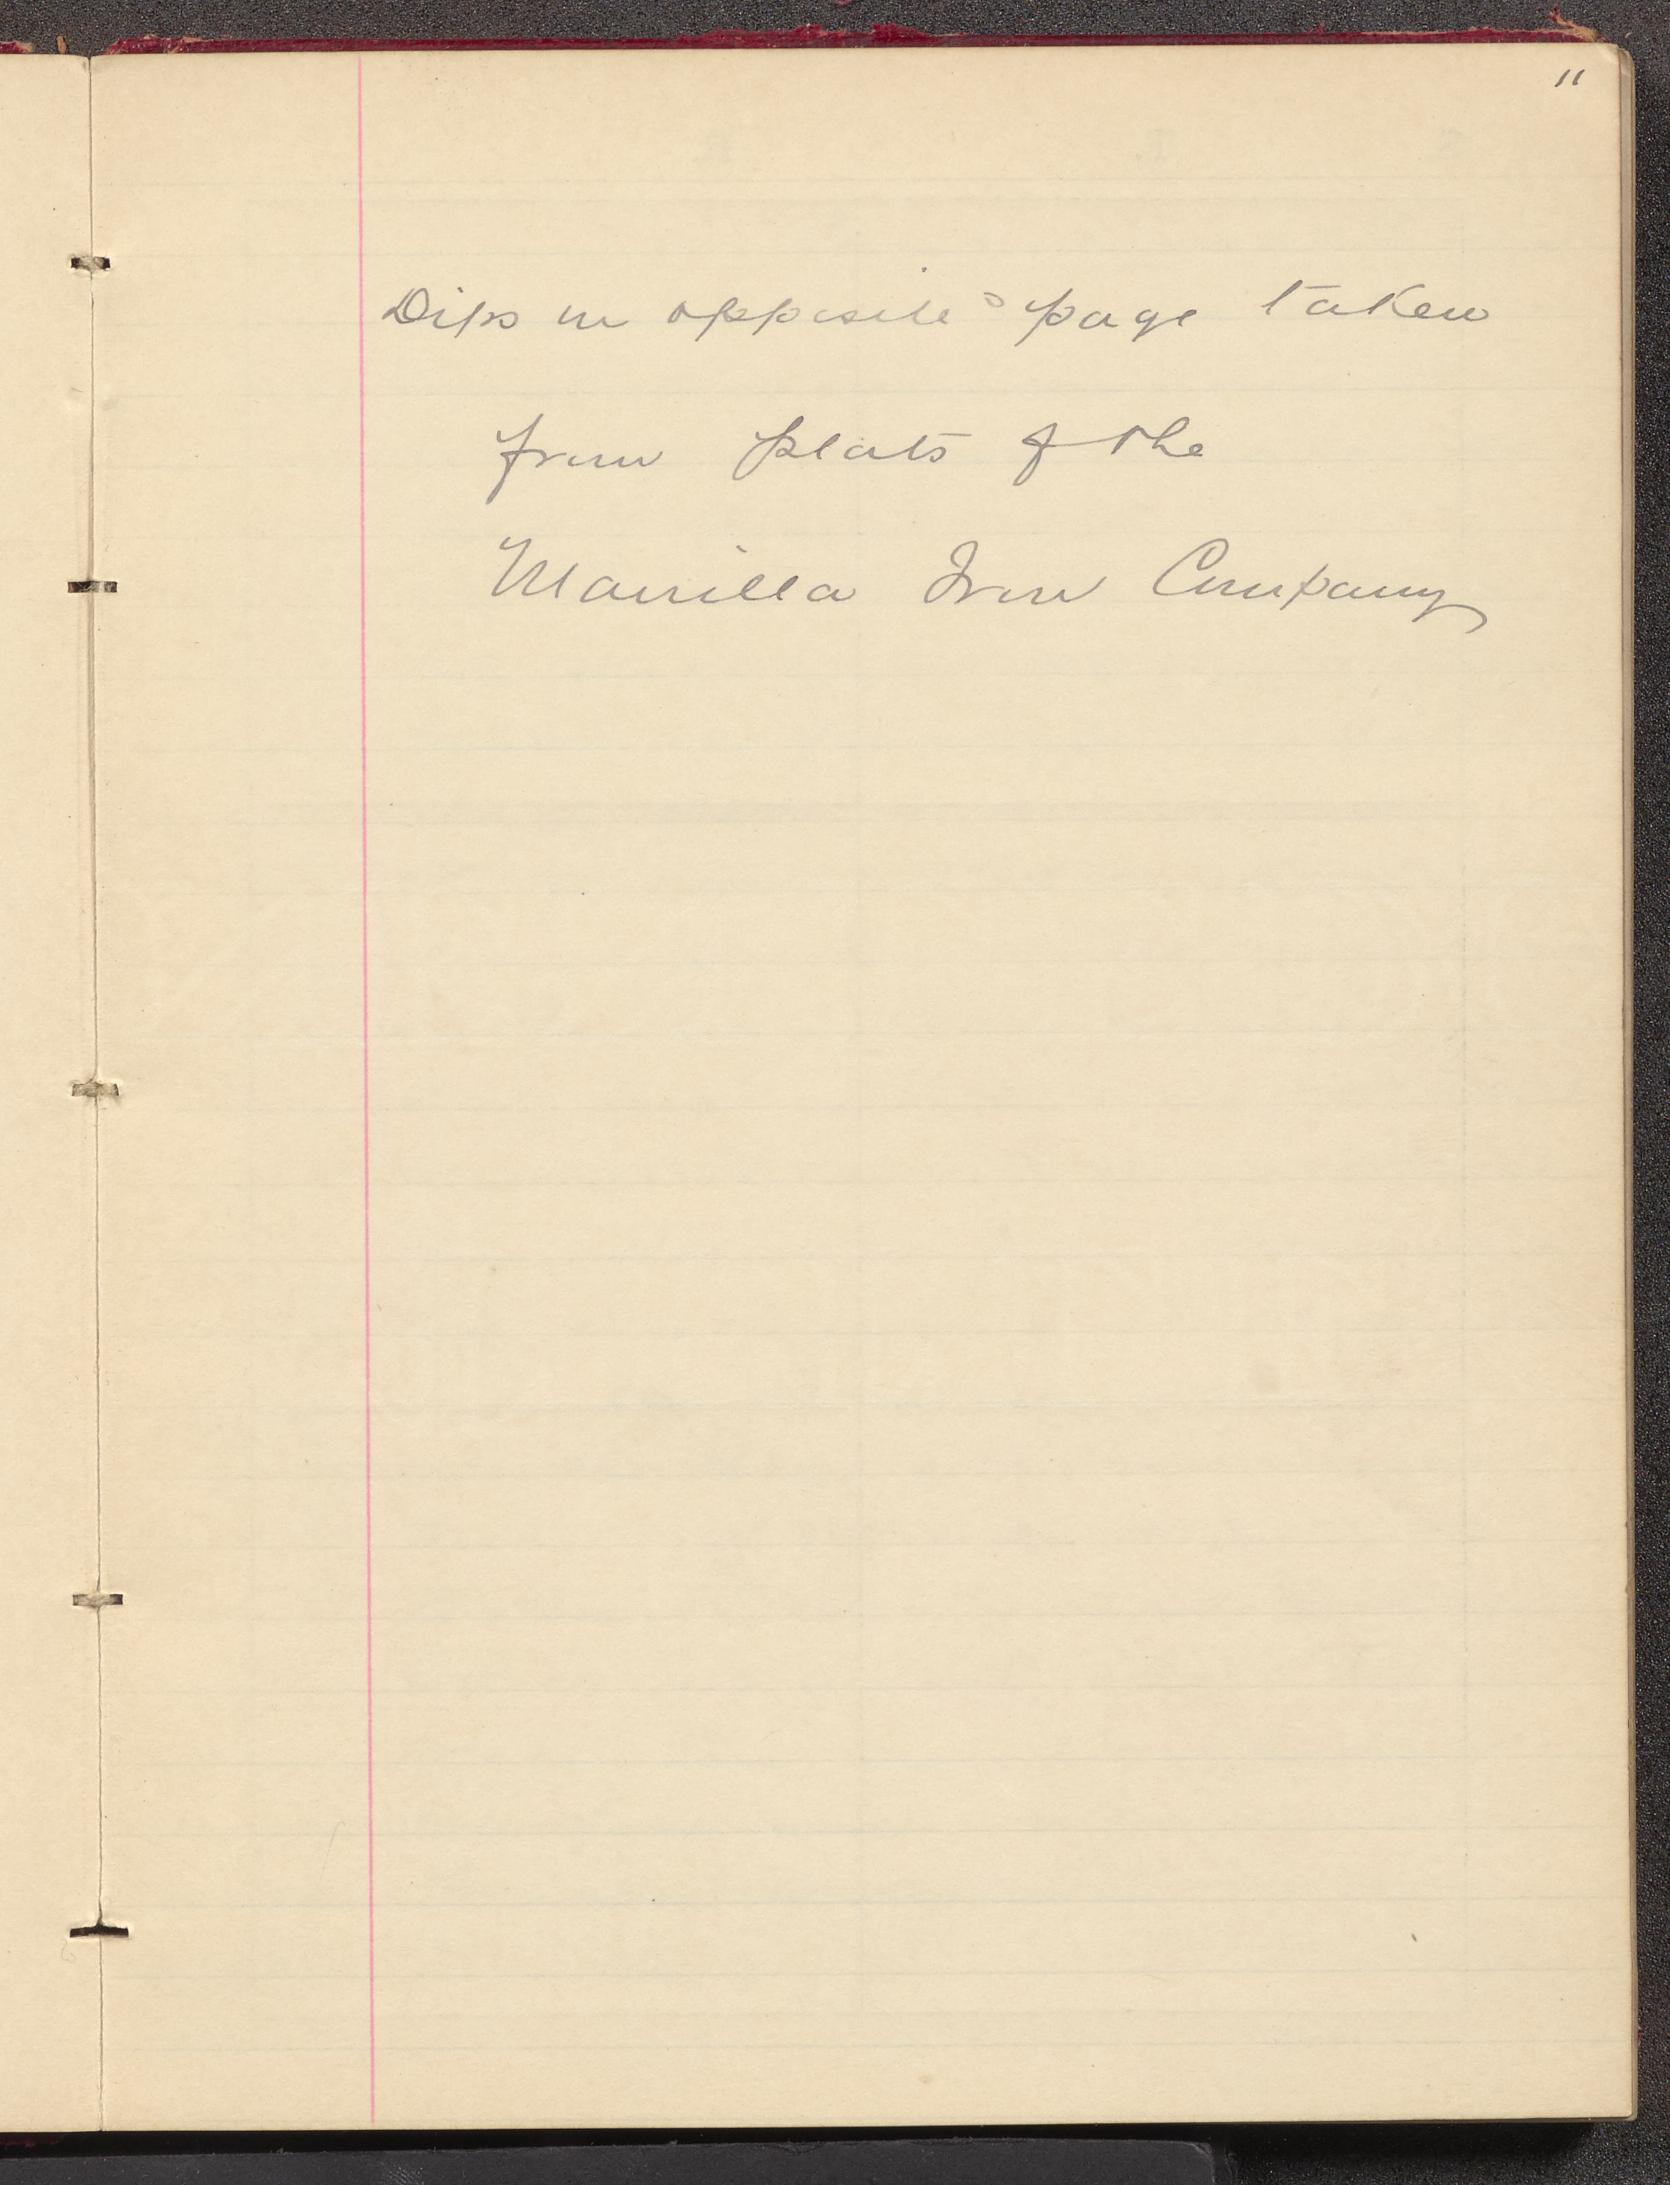 11
Dips on opposite page taken
from plats of the
Manilla Iron Company